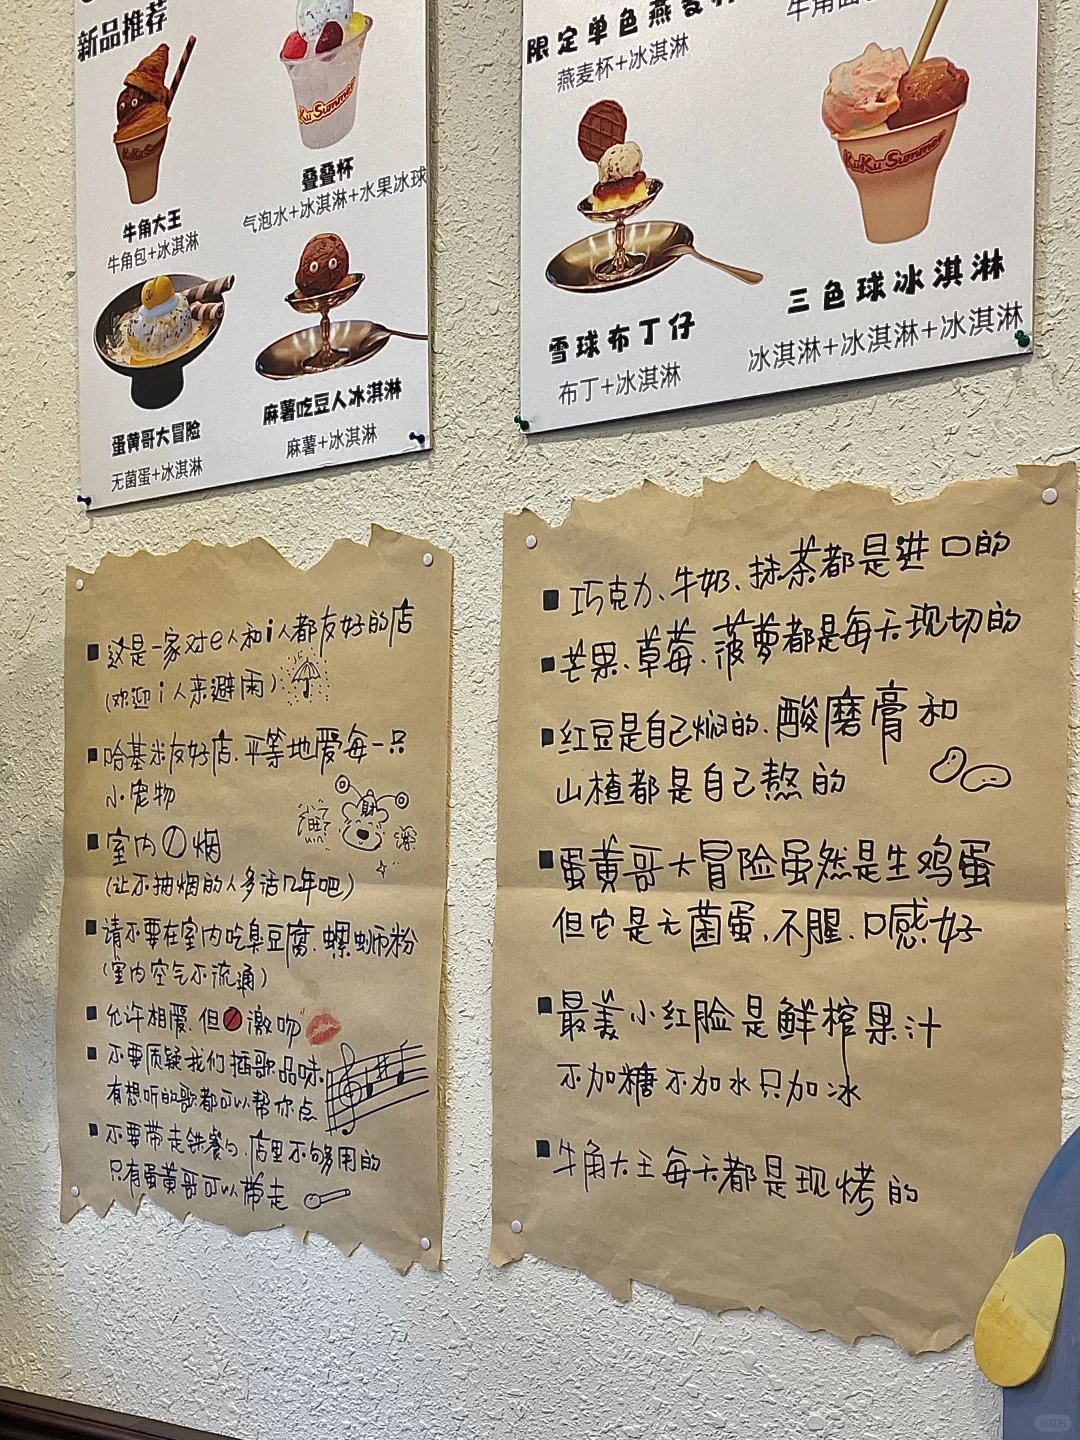 新品推荐
KuKu Summer
牛角大王
牛角包+冰淇淋
KuKu Summer
叠叠杯
气泡水+冰淇淋+水果冰球
蛋黄哥大冒险
无菌蛋+冰淇淋
麻薯吃豆人冰淇淋
麻薯+冰淇淋
限定单色燕麦杯
燕麦杯+冰淇淋
雪球布丁仔
布丁+冰淇淋
KuKu Summer
三色球冰淇淋
冰淇淋+冰淇淋+冰淇淋
这是一家对e人和i人都友好的店
(欢迎i人来避雨)
哈基米友好店、平等地爱每一只
小宠物
室内🚫烟
(让不抽烟的人多活几年吧)
请不要在室内吃臭豆腐、螺蛳粉
(室内空气不流通)
允许相爱，但🚫激吻
不要质疑我们播歌品味，
有想听的歌都可以帮你点
不要带走铁餐勺、店里不够用的
只有蛋黄哥可以带走
巧克力、牛奶、抹茶都是进口的
芒果、草莓、菠萝都是每天现切的
红豆是自己焖的、酸磨膏和
山楂都是自己熬的
蛋黄哥大冒险虽然是生鸡蛋
但它是无菌蛋、不腥、口感好
最美小红脸是鲜榨果汁
不加糖不加水只加冰
牛角大王每天都是现烤的
小红书